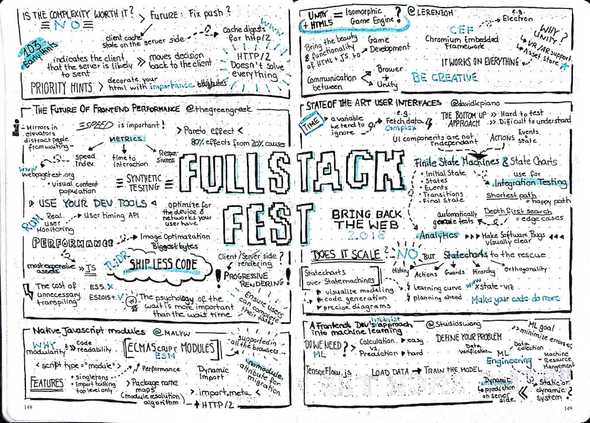 IS THE COMPLEXITY WORTH IT?
= NO =
Future: Fix push?
client cache
State on the server side
Cache digests
for http/2
WHY?
103
early hints
indicates the client
that the server is likely
to sent
moves decision
back to the client
HTTP/2
Doesn't solve
everything
PRIORITY HINTS
decorate your
html with importance attributes
THE FUTURE OF FRONTEND PERFORMANCE @thegreengreek
Mirrors in
elevators
distract people
from waiting
SPEED is important!
METRICS
speed
Index
time to
Interaction
Pareto effect
80% effects from 20% causes
webpagetest.org
visual content
population
SYNTHETIC
TESTING
USE YOUR DEV TOOLS
RUM
Real
User
Monitoring
User timing API
optimize for
the device &
networks your
user have
PERFORMANCE
Image Optimization
Biggest bytes
most expensive
assets
IS
TL;DR
SHIP LESS CODE
Client/Server side
rendering
PROGRESSIVE
RENDERING
The cost of
unnecessary
transpiling
ES5
ES2015+
The psychology of the
wait is more important
than the wait time
Ensure users
can complete
their tasks
Native Javascript modules @MALYW
WHY
modularity
Code
readability
<script type="module">
FEATURES
singletons
Import hoisting
top level only
ECMAScript MODULES
ESM
Performance
Package name
maps
(module resolution
algorithm)
Dynamic
Import
import.meta
+ HTTP/2
supported in
all the browsers
nomodule
attribute for
migration
148
FULLSTACK
FEST
BRING BACK
THE WEB
2018
UNITY
+ HTML5
=
Isomorphic
Game Engine!
@LERENBOH
Bring the beauty
& functionality
of HTML & JS to
Game
Development
Communication
between
Browser
+
Unity
e.g.
Electron
CEF
Chromium Embedded
Framework
IT WORKS ON EVERYTHING
BE CREATIVE
WHY
Unity?
VR/AR support
Asset store
STATE OF THE ART USER INTERFACES @davidkpiano
TIME
a variable
we tend to
ignore
e.g.
Fetch data
Complex
THE BOTTOM UP
APPROACH
Hard to test
Difficult to understand
UI components are not
independant
ACTIONS
Events
state
Finite State Machines & State Charts
Initial State
States
Events
Transitions
Final State
use for
Integration Testing
Shortest path
happy path
Depth first search
edge cases
automatically
create tests
Analytics
Make Software Bugs
visually clear
DOES IT SCALE?
NO
BUT
Statecharts to the rescue
Actions
Guards
Hierarchy
Orthogonality
Statecharts
over Statemachines
visualize modeling
code generation
precise diagrams
learning curve
planning ahead
xstate
Make your code do more
A Frontend Dev's approach
into machine learning
@Studioswong
DO WE NEED
ML?
Calculation
vs
Prediction
easy
hard
DEFINE YOUR PROBLEM
ML goal
minimize errors
TensorFlow.js
LOAD DATA
TRAIN THE MODEL
Data
Verification
Data
collection
ML
Engineering
Machine
Resource
Management
Dynamic
prediction
on server
side
Static or
dynamic
system?
149